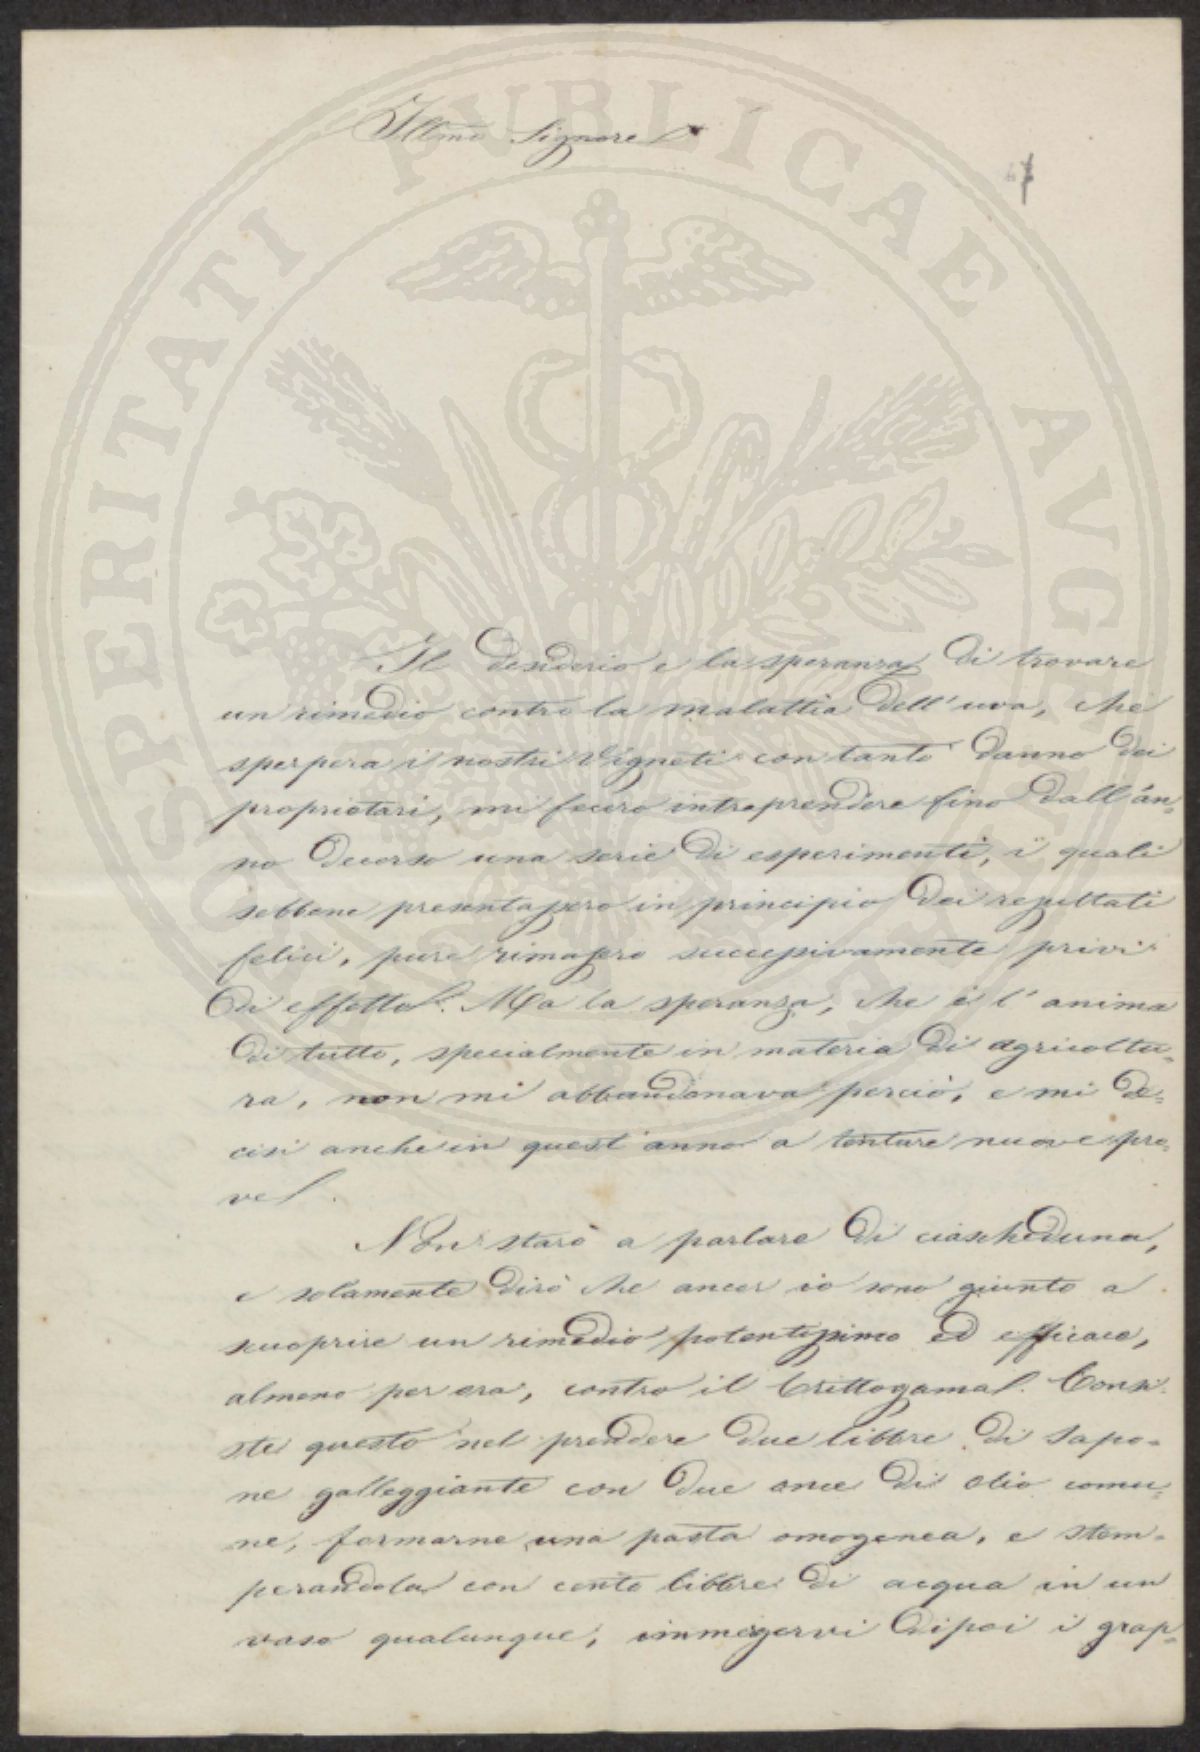 Illmo Signore
47
Il desiderio e la speranza di trovare
un rimedio contro la malattia dell'uva, che
sperpera i nostri Vigneti con tanto danno dei
proprietari, mi fecero intraprendere fino dall'an-
no decorso una serie di esperimenti, i quali
sebbene presentassero in principio dei resultati
felici, pure rimasero successivamente privi
di effetto. Ma la speranza, che è l'anima
di tutto, specialmente in materia di agricoltu-
ra, non mi abbandonava perciò, e mi de-
cisi anche in quest'anno a tentare nuove pro-
ve.
Non starò a parlare di ciascheduna,
e solamente dirò che ancor io sono giunto a
scuoprire un rimedio potentissimo ed efficace,
almeno per ora, contro il Crittogama. Consi-
ste questo nel prendere due libbre di sapo-
ne galleggiante con due once di olio comu-
ne, formarne una pasta omogenea, e stem-
perandola con cento libbre di acqua in un
vaso qualunque, immergervi dipoi i grap-
PROSPERITATI PVBLICAE AVGENDAE